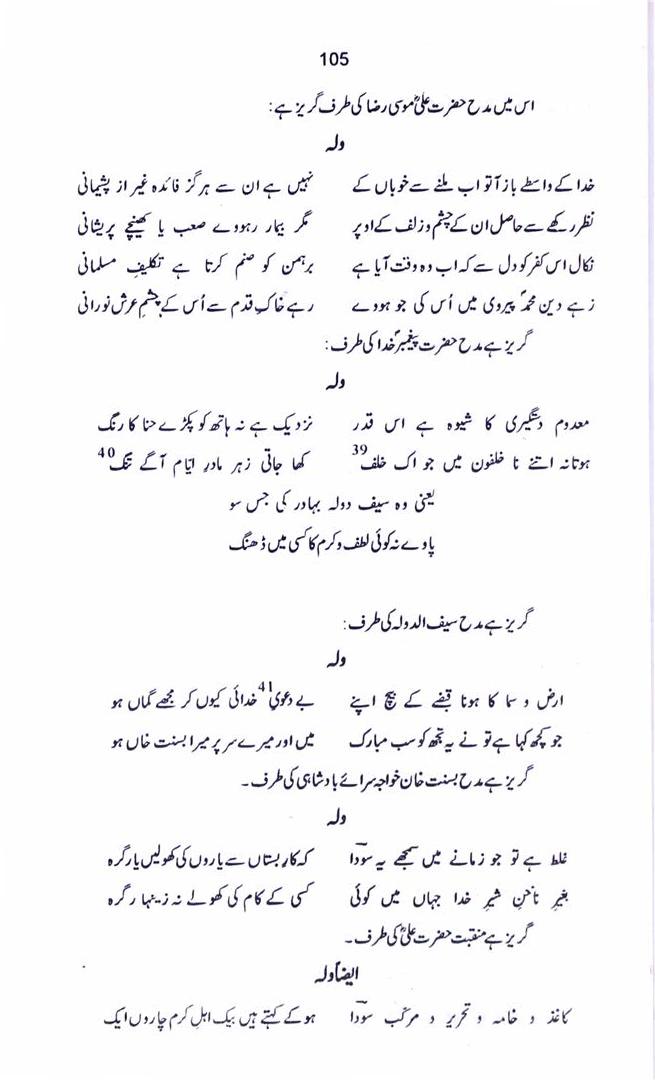 105
اس میں مدح حضرت علیؓ موسی رضا کی طرف گریز ہے:
ولہ
خدا کے واسطے باز آ تو اب ملنے سے خوباں کے نہیں ہے ان سے ہرگز فائدہ غیر از پشیمانی
نظر رکھے سے حاصل ان کے چشم و زلف کے اوپر مگر بیمار رہووے صعب یا کھینچے پریشانی
نکال اس کفر کو دل سے کہ اب وہ وقت آیا ہے برہمن کو صنم کرتا ہے تکلیفِ مسلمانی
زہے دین محمدؐ پیروی میں اُس کی جو ہووے رہے خاکِ قدم سے اُس کے چشمِ عرش نورانی
گریز ہے مدح حضرت پیغمبرؐ خدا کی طرف:
ولہ
معدوم دستگیری کا شیوہ ہے اس قدر نزدیک ہے نہ ہاتھ کو پکڑے حنا کا رنگ
ہوتا نہ اتنے نا خلفوں میں جو اک خلف39 کھا جاتی زہر مادرِ ایّام آگے تنگ40
یعنی وہ سیف دولہ بہادر کی جس سو
پاوے نہ کوئی لطف و کرم کا کسی میں ڈھنگ
گریز ہے مدح سیف الدولہ کی طرف:
ولہ
ارض و سما کا ہونا قبضے کے بیچ اپنے بے دعویِ41 خدائی کیوں کر مجھے گماں ہو
جو کچھ کہا ہے تو نے یہ تجھ کو سب مبارک میں اور میرے سر پر میرا بسنت خاں ہو
گریز ہے مدح بسنت خان خواجہ سرائے بادشاہی کی طرف۔
ولہ
غلط ہے تو جو زمانے میں سمجھے یہ سوداؔ کہ کار بستاں سے یاروں کی کھولیں یار گرہ
بغیر ناخنِ شیرِ خدا جہاں میں کوئی کسی کے کام کی کھولے نہ زینہار گرہ
گریز ہے منقبت حضرت علیؓ کی طرف۔
ایضاً ولہ
کاغذ و خامہ و تحریر و مرکب سوداؔ ہو کے کہتے ہیں بیک اہلِ کرم چاروں ایک